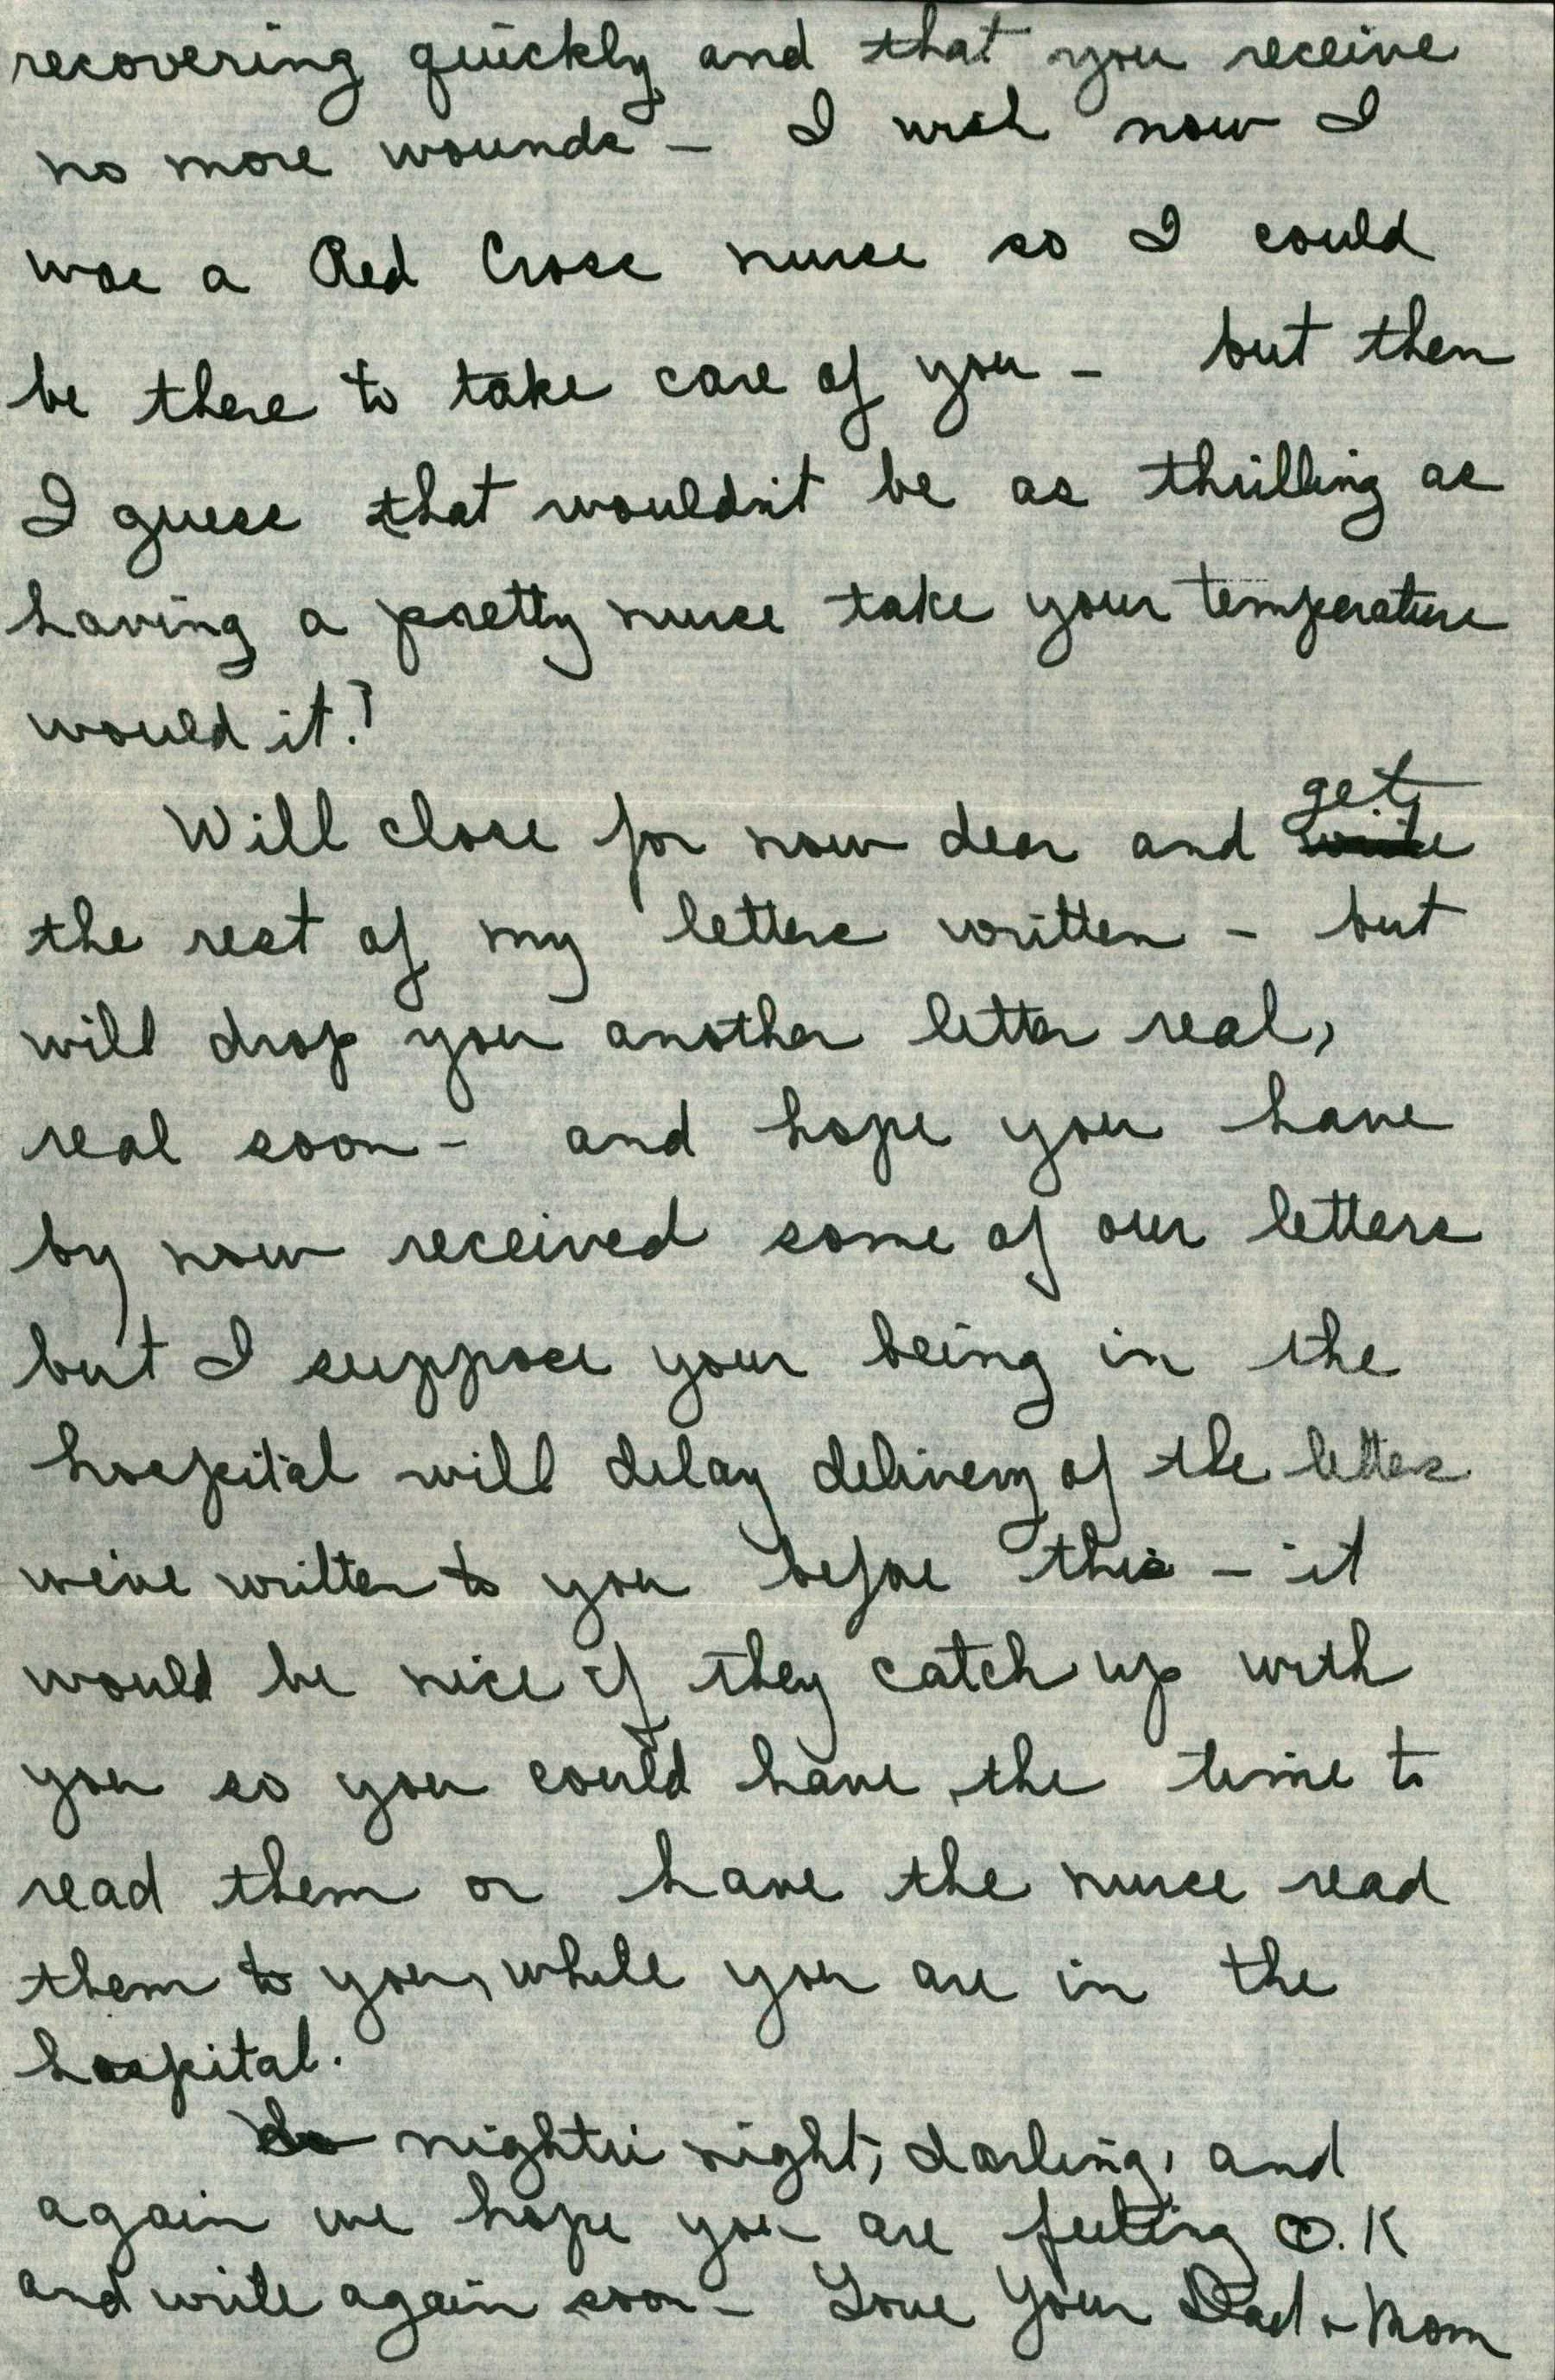 recovering quickly and that you receive
no more wounds - I wish now I
was a Red Cross nurse so I could
be there to take care of you - but then
I guess that wouldn't be as thrilling as
having a pretty nurse take your temperature
would it?
Will close for now dear and get
the rest of my letters written - but
will drop you another letter real,
real soon - and hope you have
by now received some of our letters
but I suppose your being in the
hospital will delay delivery of the letters
we've written to you before this - it
would be nice if they catch up with
you so you could have the time to
read them or have the nurse read
them to you, while you are in the
hospital.
So nightie night, darling, and
again we hope you are feeling O.K
and write again soon - Love Your Dad & Mom